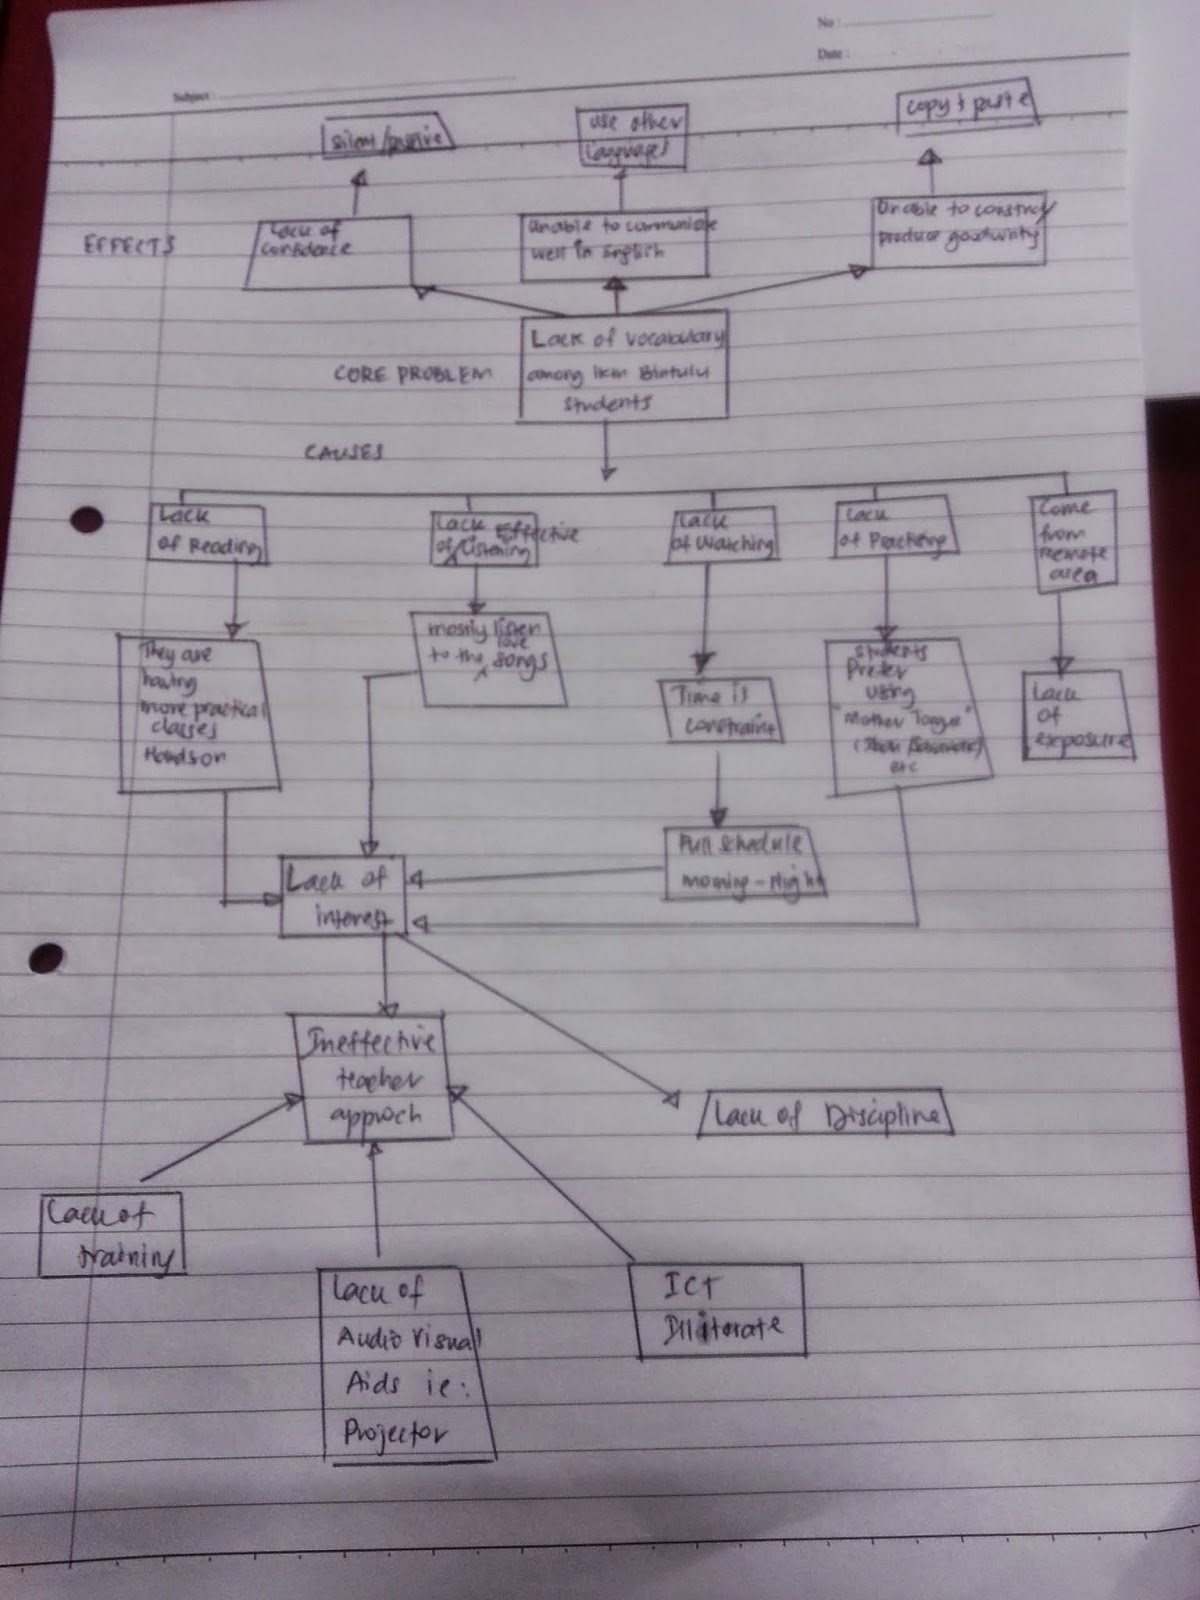 No :
Date :
Subject :
silent/passive
use other
languages
copy + paste
EFFECTS
Lack of
confidence
Unable to communicate
well in English
Unable to construct/
produce
Lack of vocabulary
among ikm Bintulu
students
CORE PROBLEM
CAUSES
Lack
of Reading
Lack Effective
of Listening
Lack
of Watching
Lack
of Practising
Come
from
remote
area
They are
having
more practical
classes
Handson
mostly listen
to the love songs
Time is
constraint
students
Prefer
using
"Mother Tongue"
etc
Lack
of
exposure
Full schedule
morning - Night
Lack of
interest
Ineffective
teacher
approch
Lack of Discipline
Lack of
training
Lack of
Audio Visual
Aids ie:
Projector
ICT
Illiterate